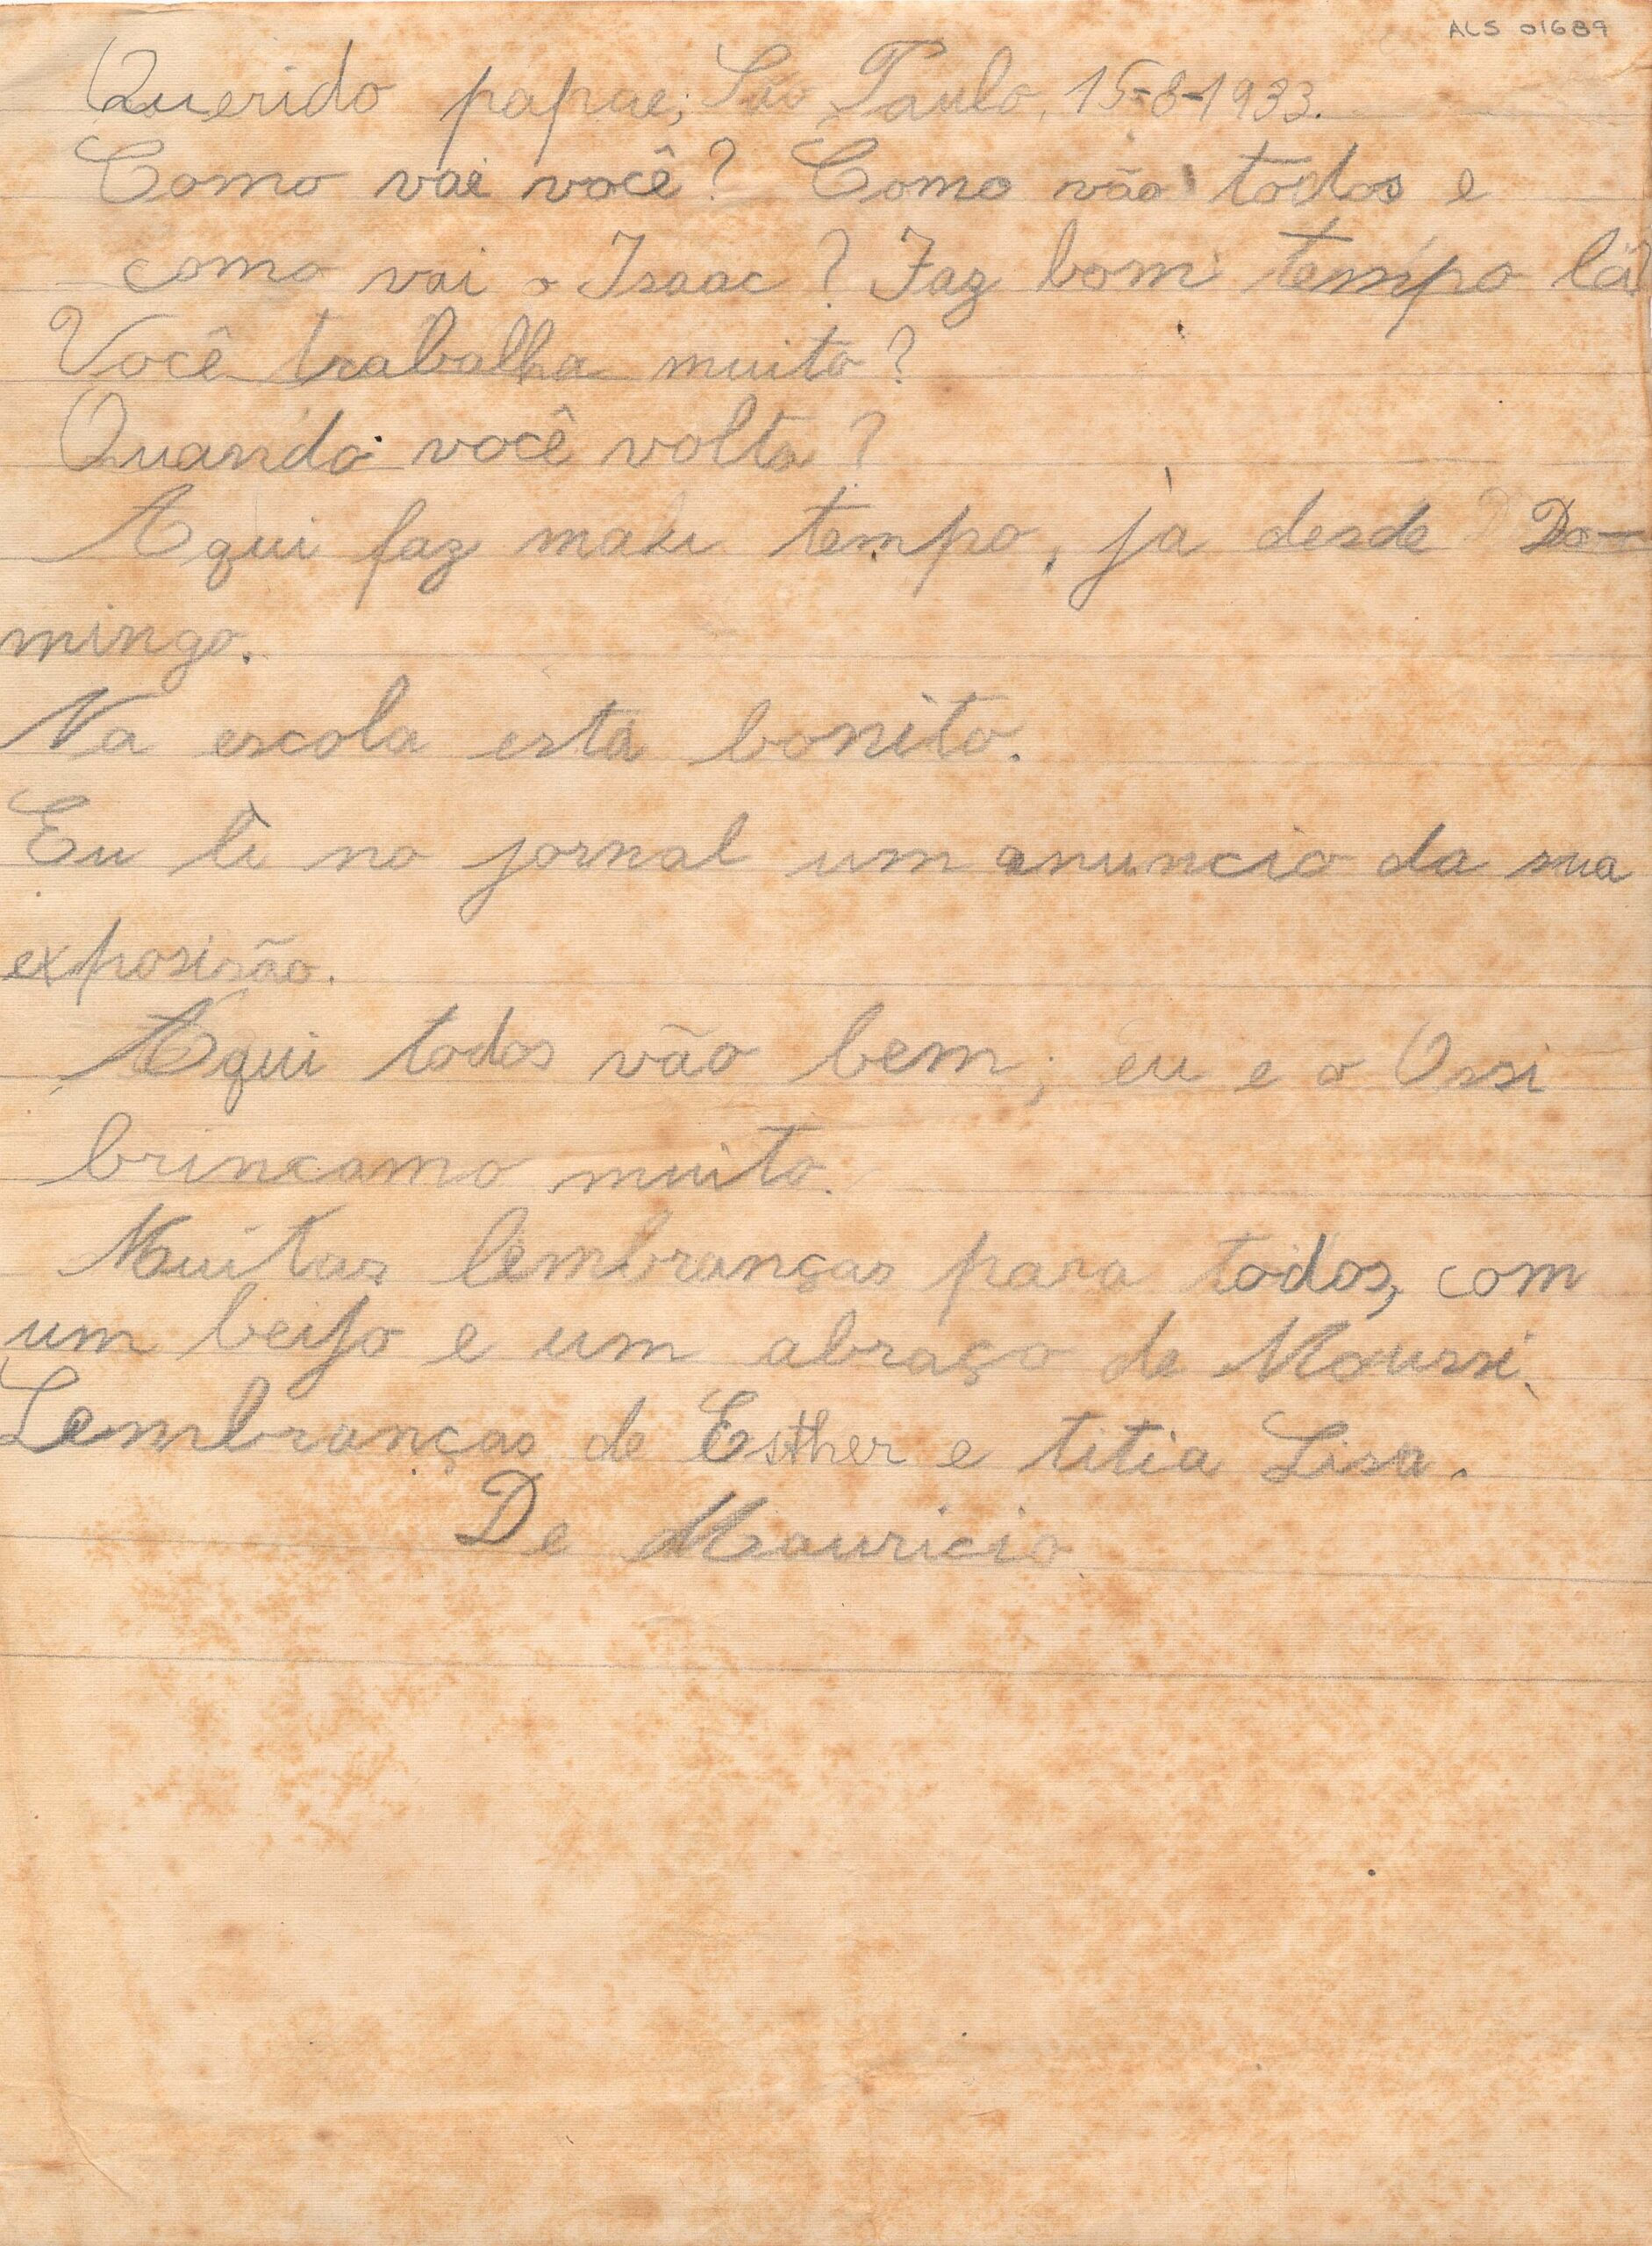 ALS 01689
Querido papae, São Paulo, 15-8-1933.
Como vai você? Como vão todos e
como vai o Isaac? Faz bom tempo lá?
Você trabalha muito?
Quando você volta?
Aqui faz mau tempo, já desde Do-
mingo.
Na escola está bonito.
Eu lì no jornal um anuncio da sua
exposisão.
Aqui todos vão bem, eu e o Ossi
brincamo muito.
Muitas lembranças para todos, com
um beijo e um abraço de Maussi.
Lembranças de Esther e titia Lisa.
De Mauricio